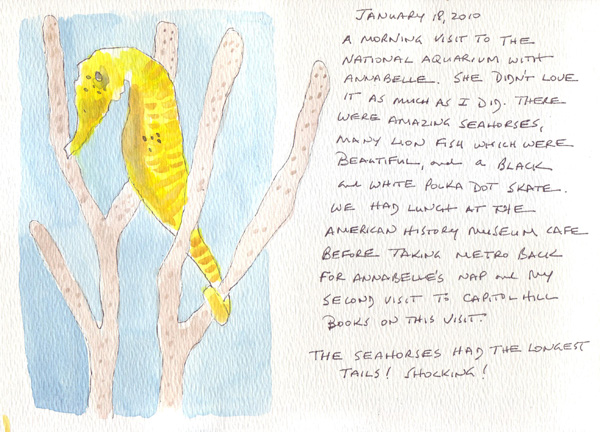 JANUARY 18, 2010
A MORNING VISIT TO THE
NATIONAL AQUARIUM WITH
ANNABELLE. SHE DIDN'T LOVE
IT AS MUCH AS I DID. THERE
WERE AMAZING SEAHORSES,
MANY LION FISH WHICH WERE
BEAUTIFUL, and a BLACK
and WHITE POLKA DOT SKATE.
WE HAD LUNCH AT THE
AMERICAN HISTORY MUSEUM CAFE
BEFORE TAKING METRO BACK
FOR ANNABELLE'S NAP and MY
SECOND VISIT TO CAPITOL HILL
BOOKS ON THIS VISIT.
THE SEAHORSES HAD THE LONGEST
TAILS! SHOCKING!